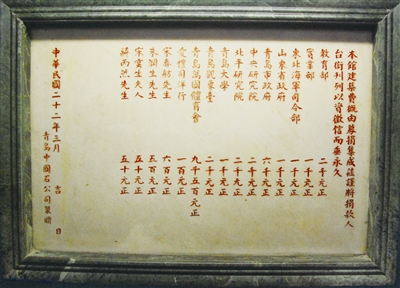 本館建築費概由募捐集成茲謹將捐款人
台銜刊列以資徵信而垂永久
教育部 二千元正
實業部 一千元正
東北海軍司令部 一千元正
山東省政府 一千元正
青島市政府 六千元正
中央研究院 二千元正
北平研究院 二千元正
青島大學 一千元正
青島觀象臺 二千元正
青島萬國體育會 九千五百元正
愛禮司洋行 一百元正
宋春舫先生 六百元正
朱潤生先生 五百元正
宋雲生夫人 五十元正
丙炎先生 五十元正
中華民國二十二年三月 吉日
青島中國石公司製贈